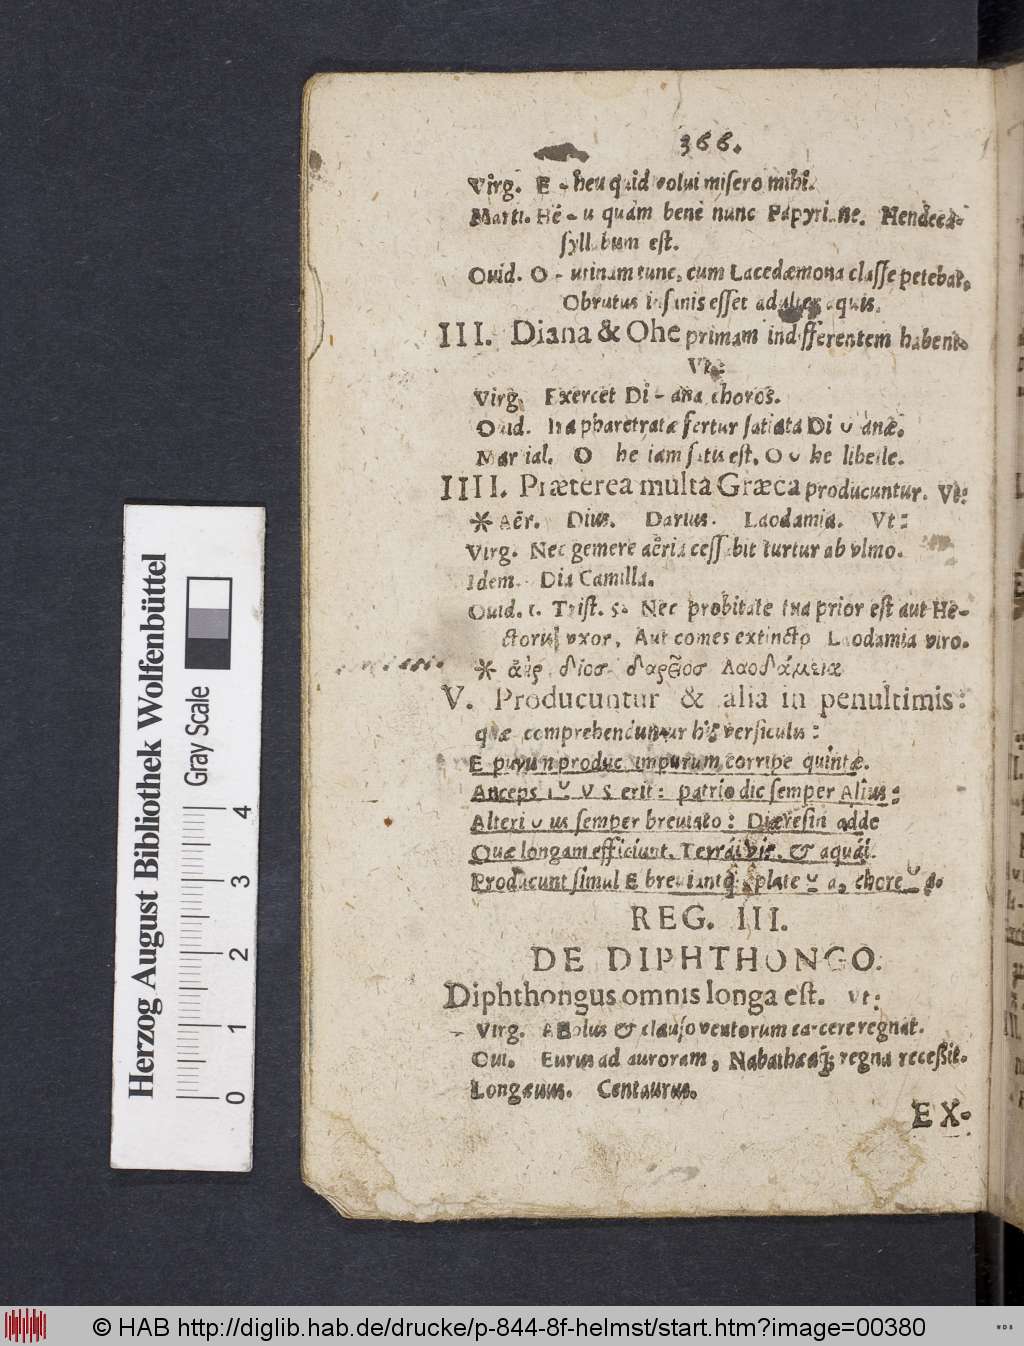 366.
Virg. E - heu quid volui misero mihi.
Marti. Hē - u quàm benè nunc Papyriane. Hendeca-
syllabum est.
Ovid. O - utinam tunc, cum Lacedæmona classe petebat,
Obrutus insanis esset adulter aquis.
III. Diana & Ohe primam indifferentem habent.
Vt:
Virg. Exercet Di - ana choros.
Ouid. Ita pharetratæ fertur satiata Di ᴗ anæ.
Martial. O he iam satis est. O ᴗ he libelle.
IIII. Præterea multa Græca producuntur. Vt:
* Aër. Dius. Darius. Laodamia. Vt:
Virg. Nec gemere aëria cessabit turtur ab vlmo.
Idem. Dia Camilla.
Ouid. 1. Trist. 5. Nec probitate tua prior est aut He-
ctoris vxor, Aut comes extincto Laodamia viro.
V. Producuntur & alia in penultimis:
quæ comprehenduntur his versiculis:
E purum produc, impurum corripe quintæ.
Anceps I ᴗ V S erit: patrio dic semper Alius:
Alteri ᴗ us semper breviato: Diæresin adde
Quæ longam efficiunt. Terrái vis, & aquái.
Producunt simul E breviantq; plate ᴗ a, chore ᴗ a.
REG. III.
DE DIPHTHONGO.
Diphthongus omnis longa est. vt:
Virg. AEolus & clauso ventorum carcere regnat.
Oui. Eurus ad auroram, Nabathæaq; regna recessit.
Longæuus. Centaurus.
EX-
Herzog August Bibliothek Wolfenbüttel
Gray Scale
0 1 2 3 4
© HAB http://diglib.hab.de/drucke/p-844-8f-helmst/start.htm?image=00380